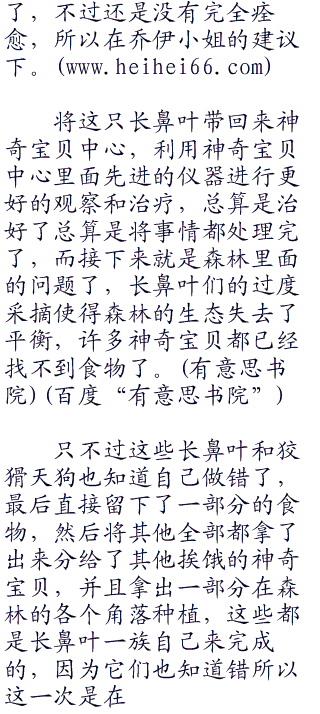 了，不过还是没有完全痊
愈，所以在乔伊小姐的建议
下。(www.heihei66.com)
将这只长鼻叶带回来神
奇宝贝中心，利用神奇宝贝
中心里面先进的仪器进行更
好的观察和治疗，总算是治
好了总算是将事情都处理完
了，而接下来就是森林里面
的问题了，长鼻叶们的过度
采摘使得森林的生态失去了
平衡，许多神奇宝贝都已经
找不到食物了。(有意思书
院)(百度“有意思书院”)
只不过这些长鼻叶和狡
猾天狗也知道自己做错了，
最后直接留下了一部分的食
物，然后将其他全部都拿了
出来分给了其他挨饿的神奇
宝贝，并且拿出一部分在森
林的各个角落种植，这些都
是长鼻叶一族自己来完成
的，因为它们也知道错所以
这一次是在